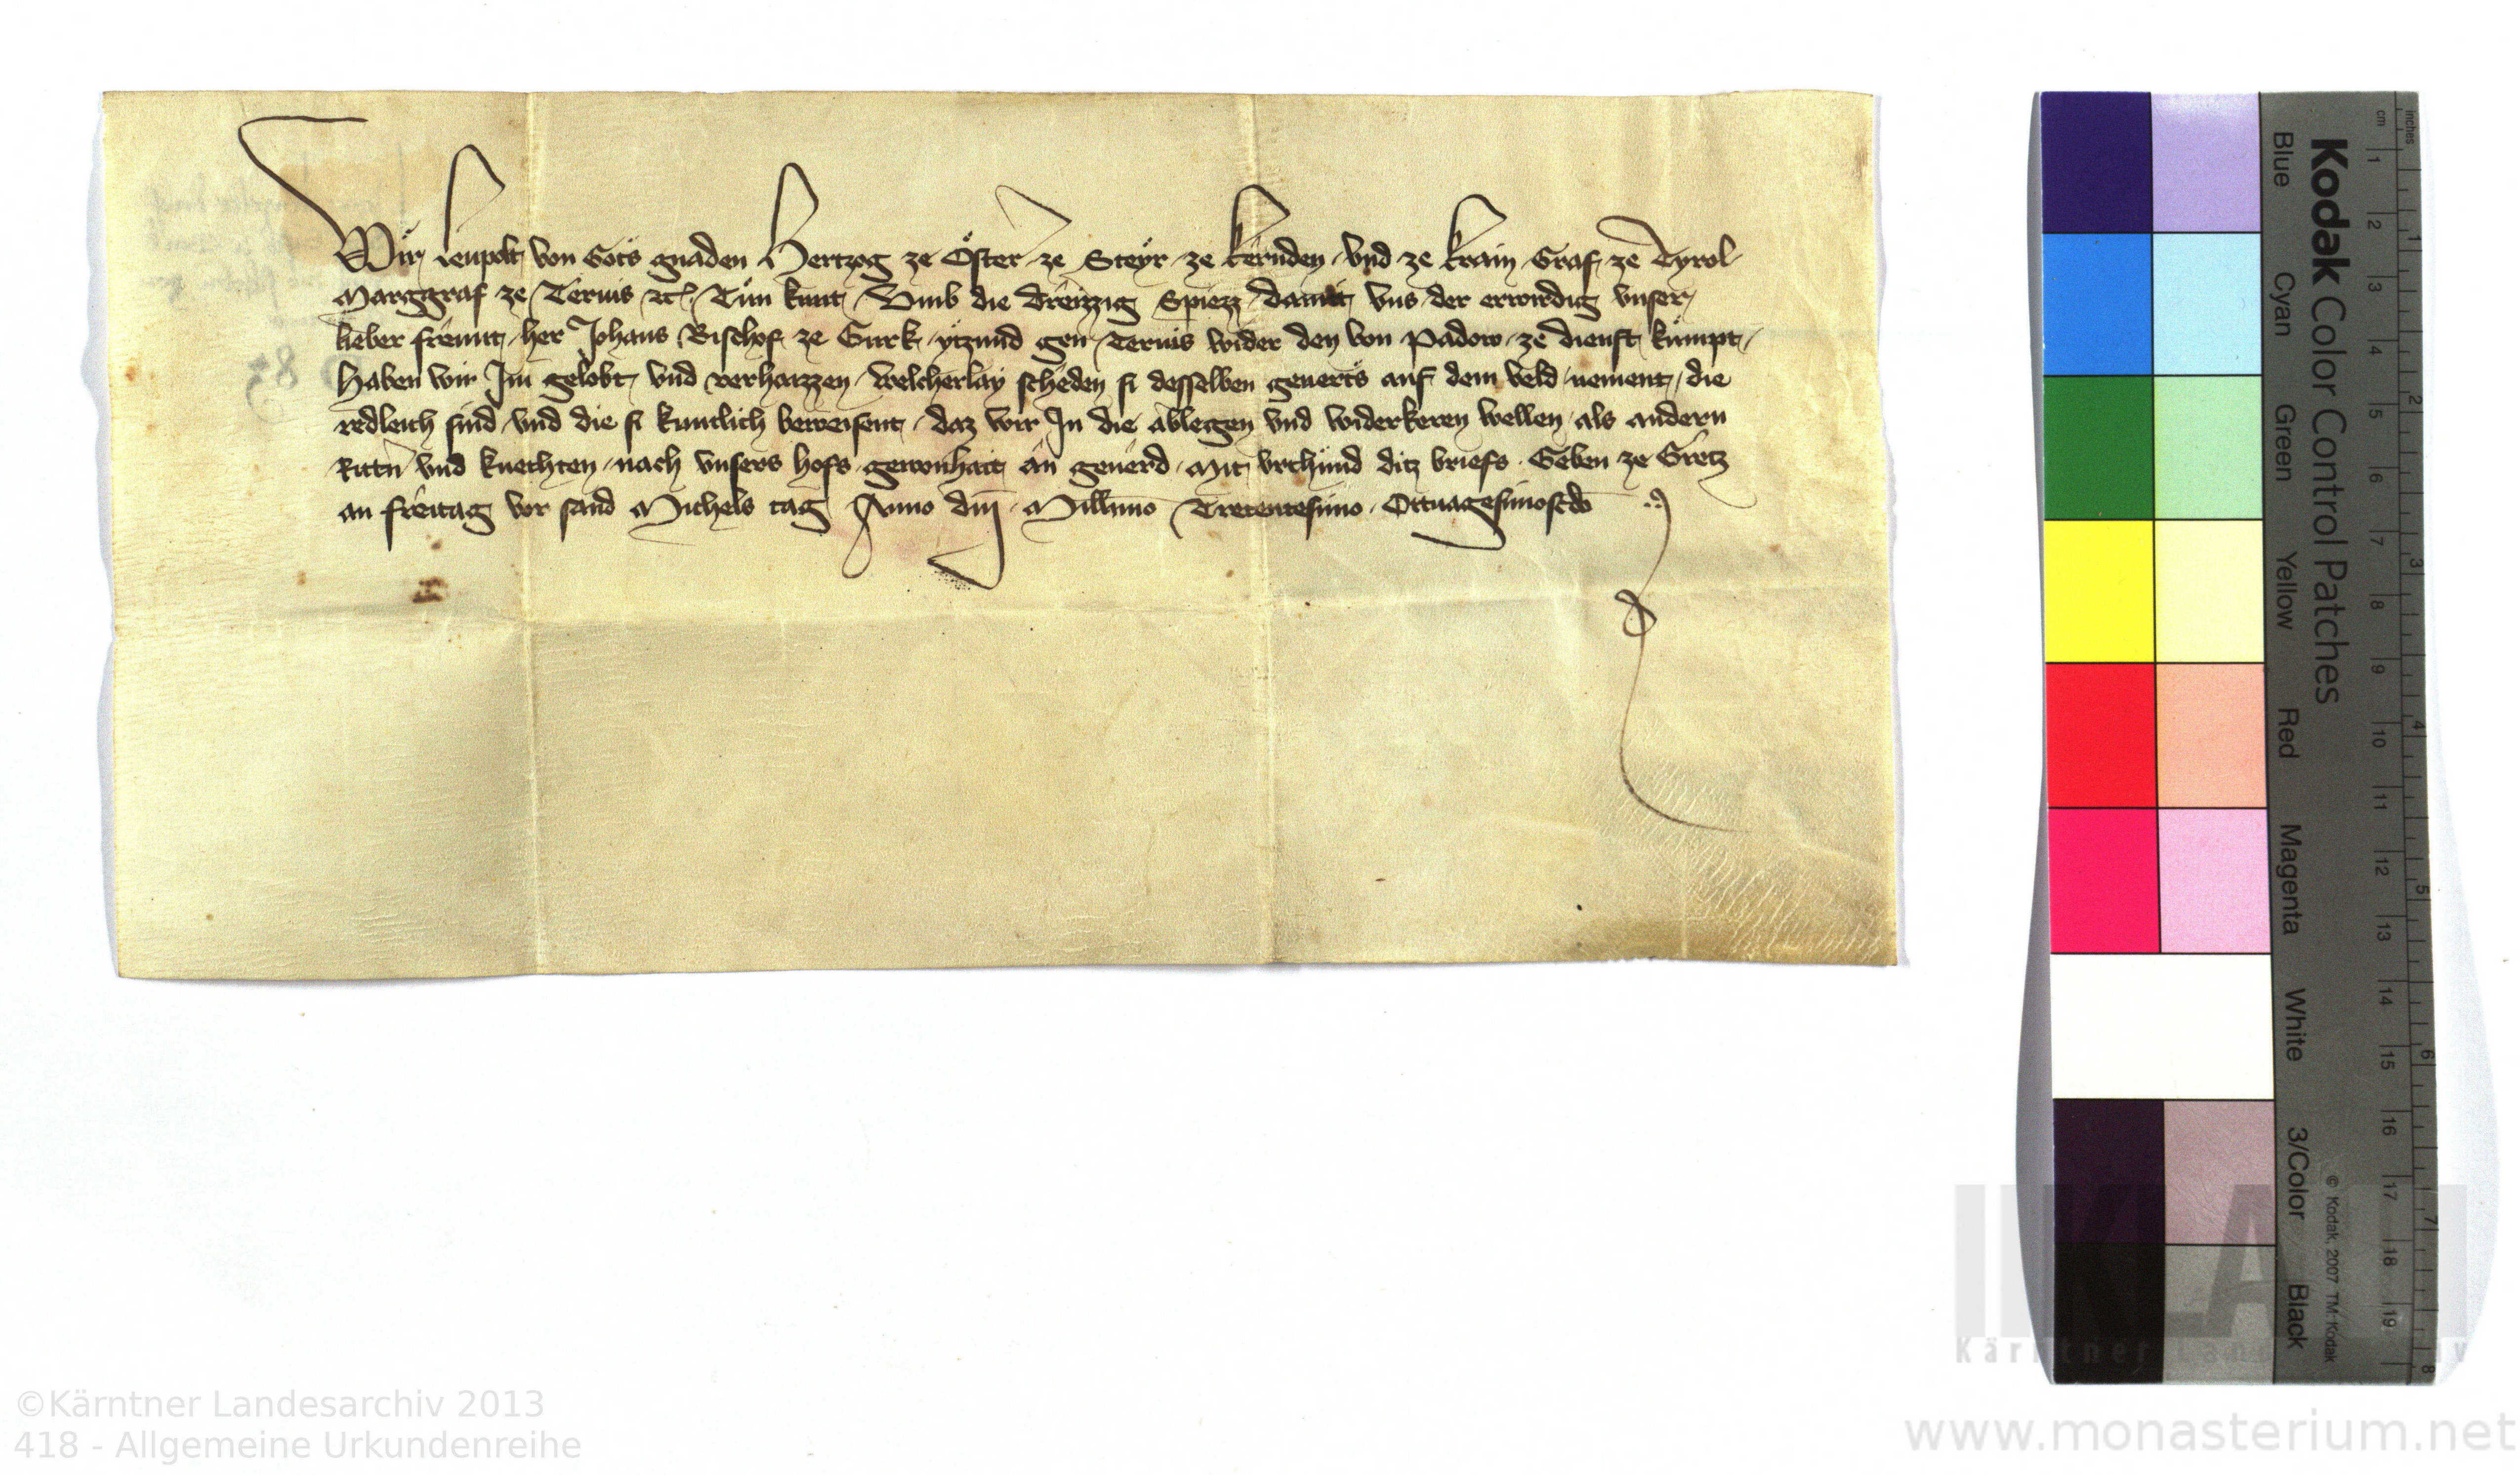 Wir Leupolt von Gots gnaden Hertzog ze Öster ze Steyr ze kernden vnd ze krain Graf ze Tyrol
Marggraf ze Teruis etc Tün kunt Vmb die dreizzig Spiezz damit vns der erwirdig vnser
lieber freunt her Johans Bischof ze Gurk yczund gen Teruis wider den von Padow ze dienst kümpt
Haben wir Im gelobt vnd verhaizzen welcherlay scheden si desselben geuerts auf dem veld nement die
redleich sind vnd die si kuntlich beweisent daz wir In die ablegen vnd widerkeren wellen als andern
Rittn vnd knechten nach vnsers hofs gewonhait an geuerd Mit vrchünd ditz briefs Geben ze Gretz
an freitag vor sand Michels tag Anno dm̄ Millmo Trecentesimo Octuagesimoscdo
Kodak Color Control Patches
Blue Cyan Green Yellow Red Magenta White 3/Color Black
© Kodak, 2007 TM: Kodak
cm 1 2 3 4 5 6 7 8 9 10 11 12 13 14 15 16 17 18 19
inches 1 2 3 4 5 6 7 8
©Kärntner Landesarchiv 2013
418 - Allgemeine Urkundenreihe
www.monasterium.net